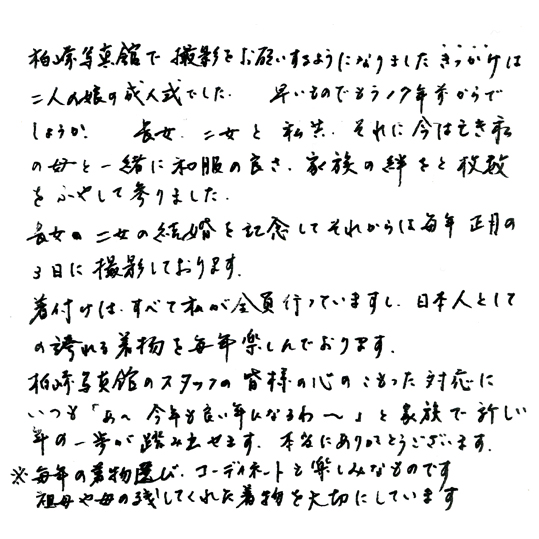 柏崎写真館で撮影をお願いするようになりましたきっかけは
二人の娘の成人式でした。 早いものでもう17年前からで
しょうか。 長女、二女と私共、それに今は亡き私
の母と一緒に和服の良さ、家族の絆をと枚数
をふやして参りました。
長女、二女の結婚を記念してそれからは毎年正月の
3日に撮影しております。
着付けは、すべて私が全員行っていますし、日本人として
の誇れる着物を毎年楽しんでおります。
柏崎写真館のスタッフの皆様の心のこもった対応に
いつも「あ〜今年も良い年になるわ〜」と家族で新しい
年の一歩が踏み出せます。本当にありがとうございます。
※毎年の着物選び、コーディネートも楽しみなものです
祖母や母の残してくれた着物を大切にしています